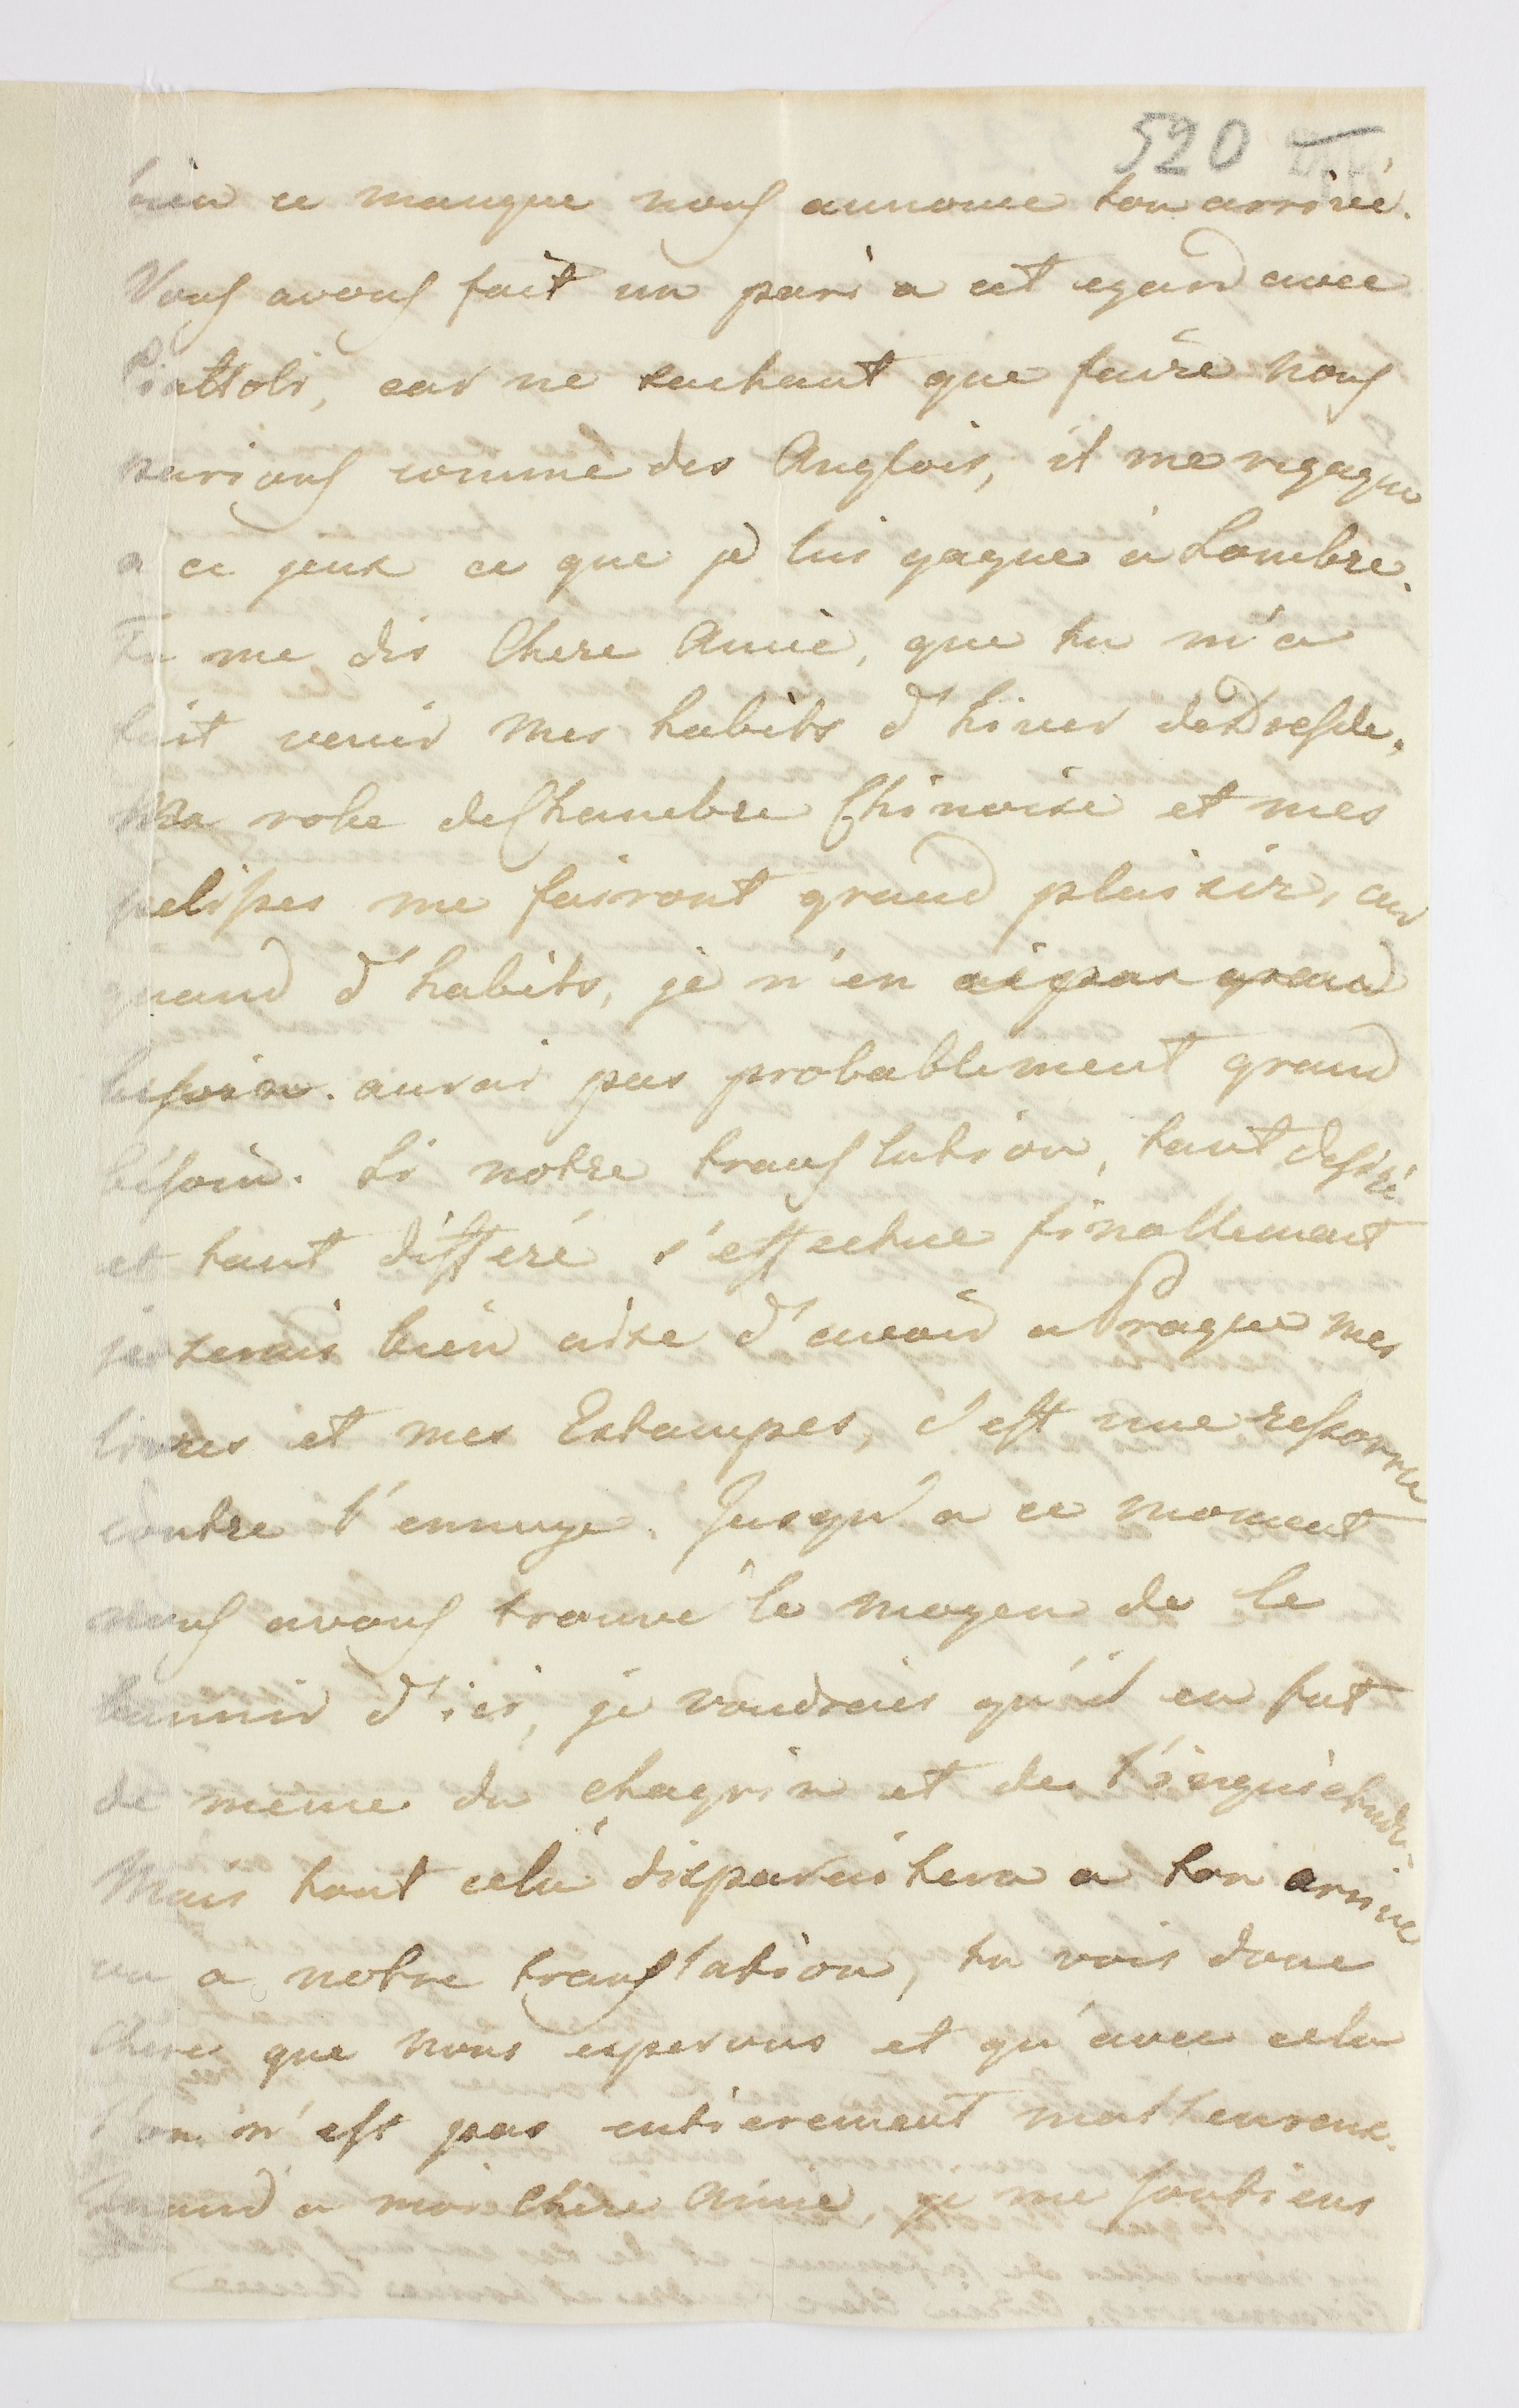 520
bien ce manque nous annonce ton arrivé.
Nous avons fait un pari a cet egard avec
Piattoli, car ne sachant que faire nous
parions comme des Anglois, il me regagne
a ce jeux ce que je lui gagne a Lombre.
Tu me dis Chere Amie, que tu m'a
fait venir mes habits d'hiver de Dresde,
Ma robe de Chambre Chinoise et mes
pelisses me fairont grand plaisir, car
quand d'habits, je n'en ai pas grand
besoin. aurai pas probablement grand
bésoin. Si notre translation, tant desiré
et tant differé s'effectue finallement
je serais bien aise d'avoir a Prague mes
livres et mes Estampes, c'est une ressource
contre l'ennuye. Jusqu'a ce moment
nous avons trouvé le moyen de le
bannir d'ici, je voudrais qu'il en fut
de meme du chagrin et de l'inquietude.
Mais tout cela disparaitera a ton arrivé
ou a notre translation, tu vois donc
Chere que nous esperons et qu'avec cela
l'on n'est pas entierement malheureux.
Quand a moi Chere Amie, je me soutiens